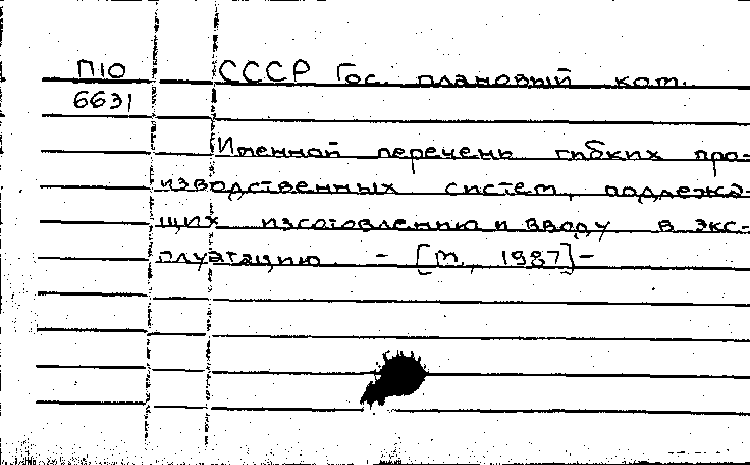 П10 СССР Гос. плановый ком.
6631
Именной перечень гибких про-
изводственных систем, подлежа-
щих изготовлению и вводу в экс-
плуатацию. - [М., 1987] -